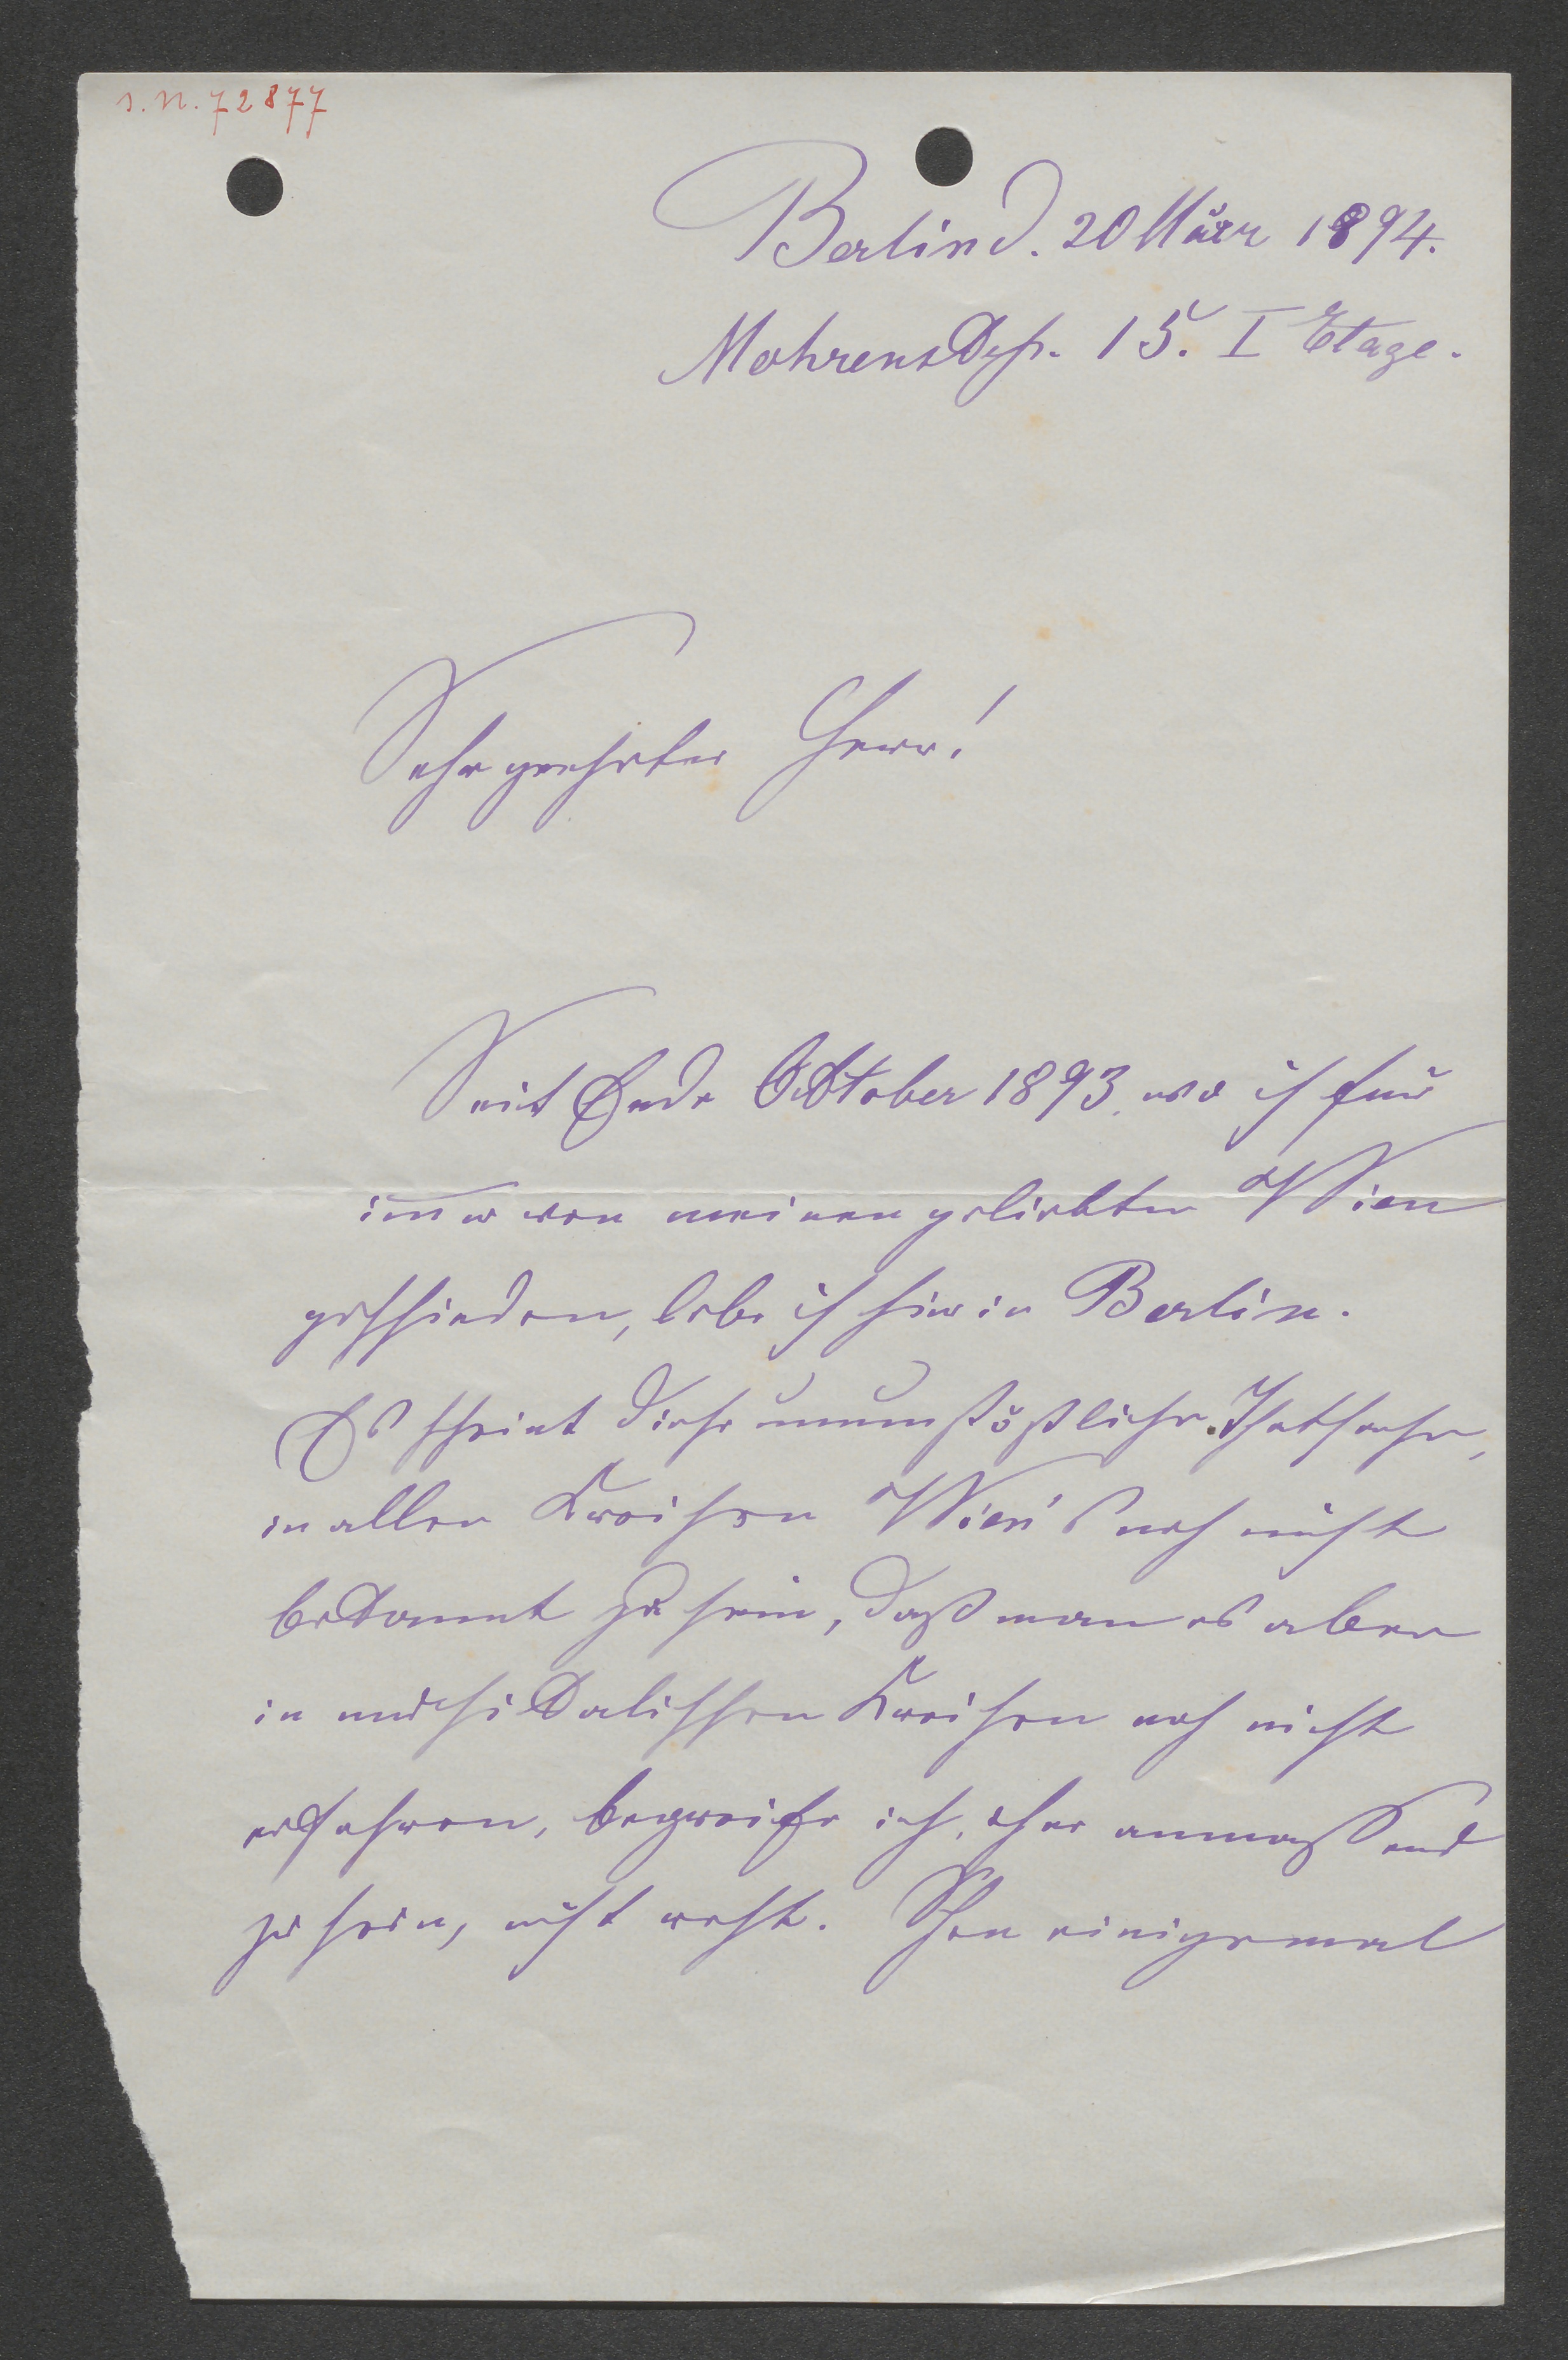 s. n. 72877
Berlin d. 20 März 1894.
Mohrenstr. 15. I Etage.
Sehr geehrter Herr!
Seit Ende October 1893, wo ich für
immer von meinen geliebten Wien
geschieden, lebe ich hier in Berlin.
Es scheint diese unumstößliche Thatsache,
in allen Kreisen Wien's noch nicht
bekannt zu sein, daß man es aber
in musikalischen Kreisen noch nicht
erfahren, begreife ich, ohne anmaßend
zu sein, nicht recht. Schon einigemal